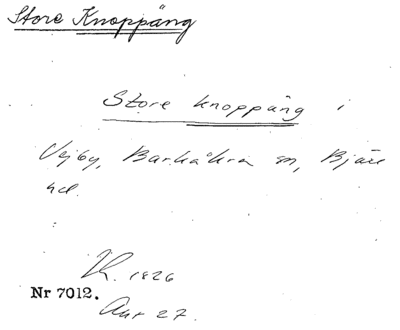 Store Knoppäng
Store Knoppäng i
Vejby, Barkåkra sn, Bjäre
hd.
1826
Nr 7012.
27.